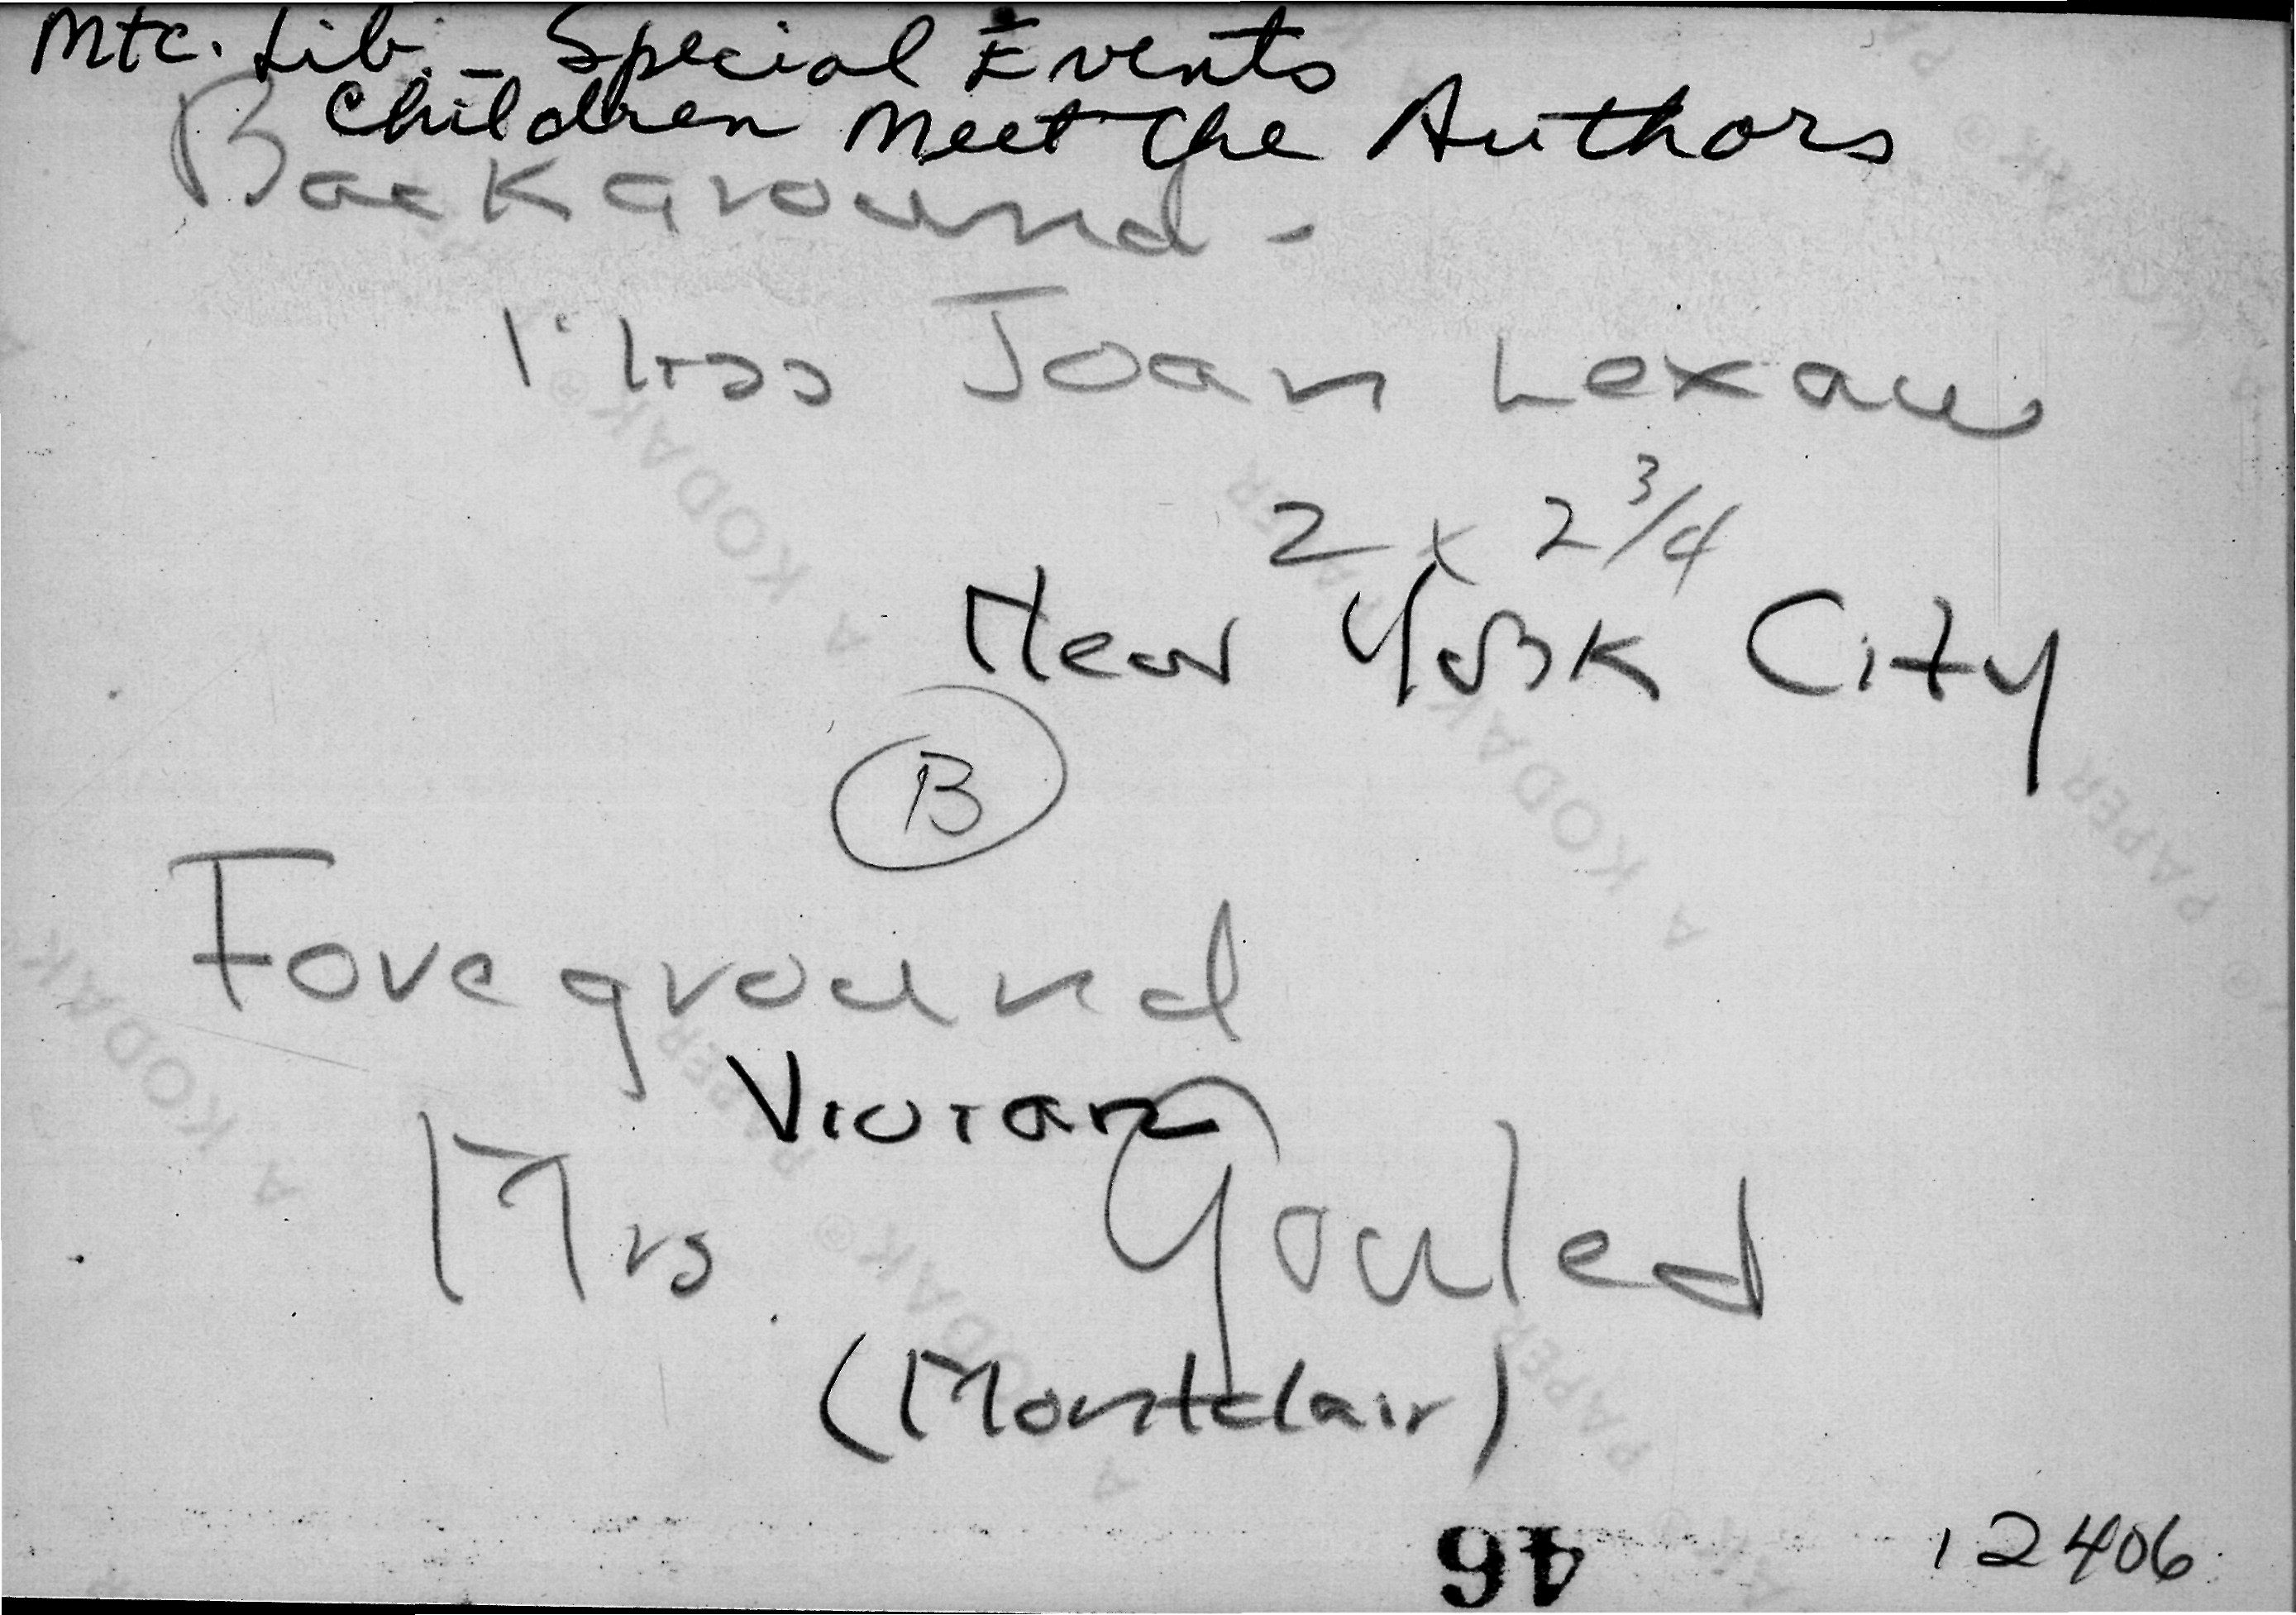 Mtc. Lib. - Special Events
Children Meet the Authors
Background -
Miss Joan Lexau
2 x 2 3/4
New York City
B
Foreground
Vivian
Mrs. Gouled
(Montclair)
46
12406
A KODAK® PAPER